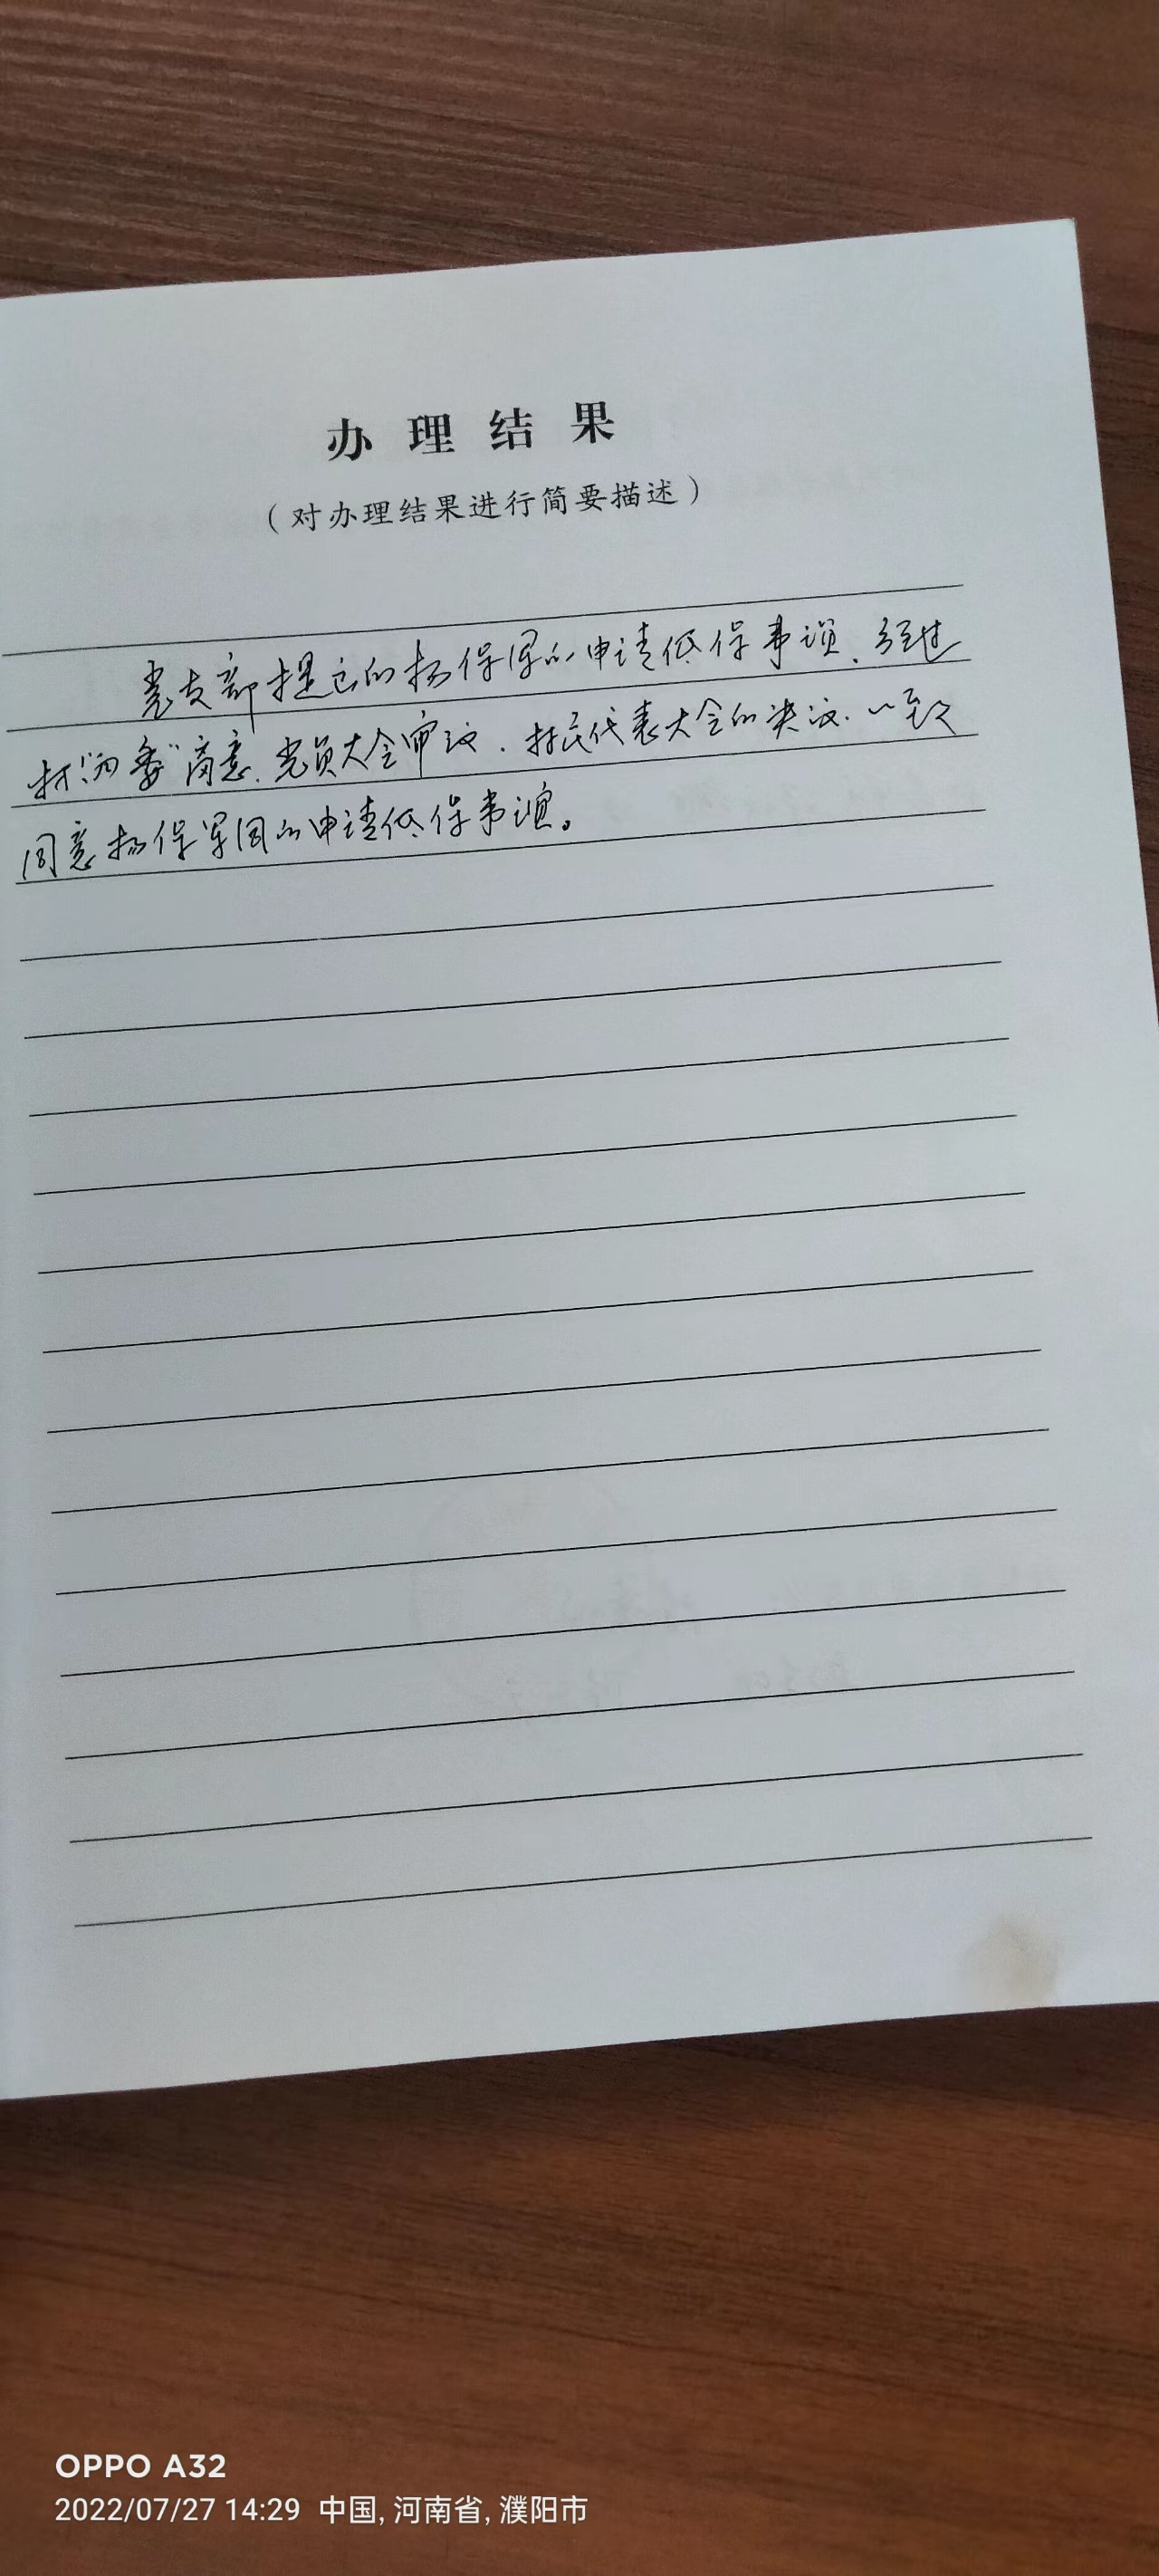 办理结果
（对办理结果进行简要描述）
党支部提出的杨保军的申请低保事项、经过
村“两委”商意、党员大会审议、村民代表大会的决议、一致
同意杨保军同的申请低保事项。
OPPO A32
2022/07/27 14:29 中国, 河南省, 濮阳市